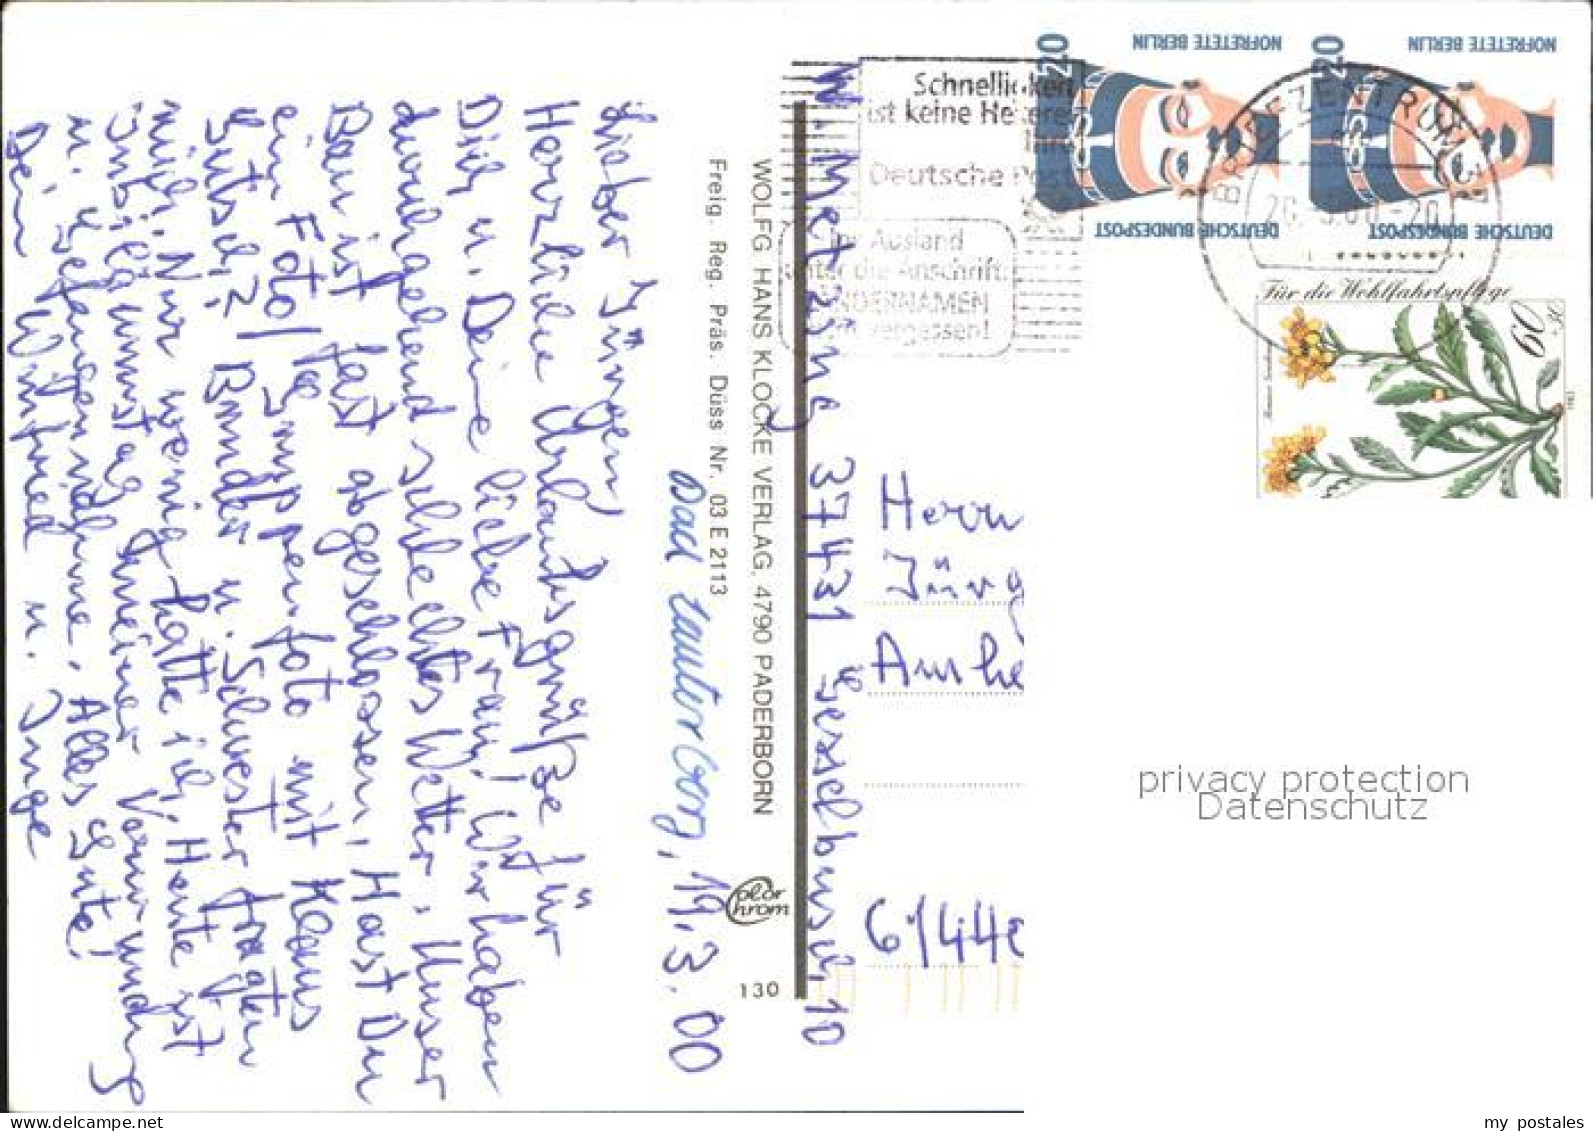 Bad Lauterberg, 19.3.00
Lieber Jürgen!
Herzliche Urlaubsgrüße für
Dich u. Deine liebe Frau! Wir haben
durchgehend schlechtes Wetter. Unser
Bau ist fast abgeschlossen, Hast Du
ein Foto/Gruppenfoto mit Klaus
Gutsch? Bruder u. Schwester fragten
mich. Nur wenig hatte ich. Heute ist
Jubiläumstag meiner Verwundung
u. Gefangennahme. Alles Gute!
Dein Winfried u. Inge
Freig. Reg. Präs. Düss Nr. 03 E 2113
WOLFG. HANS KLOCKE VERLAG, 4790 PADERBORN
Color
Chrom
130
W. Metzing 37431
10
Herrn
Jürg
6144
Schnelligkeit
ist keine Hexerei
Ihre
Deutsche Post
Ausland
unter die Anschrift
LÄNDERNAMEN
vergessen!
BRIEFZENTRUM
20
NOFRETETE BERLIN
DEUTSCHE BUNDESPOST
20
NOFRETETE BERLIN
DEUTSCHE BUNDESPOST
Für die Wohlfahrtspflege
60
+30
privacy protection
Datenschutz
my postales